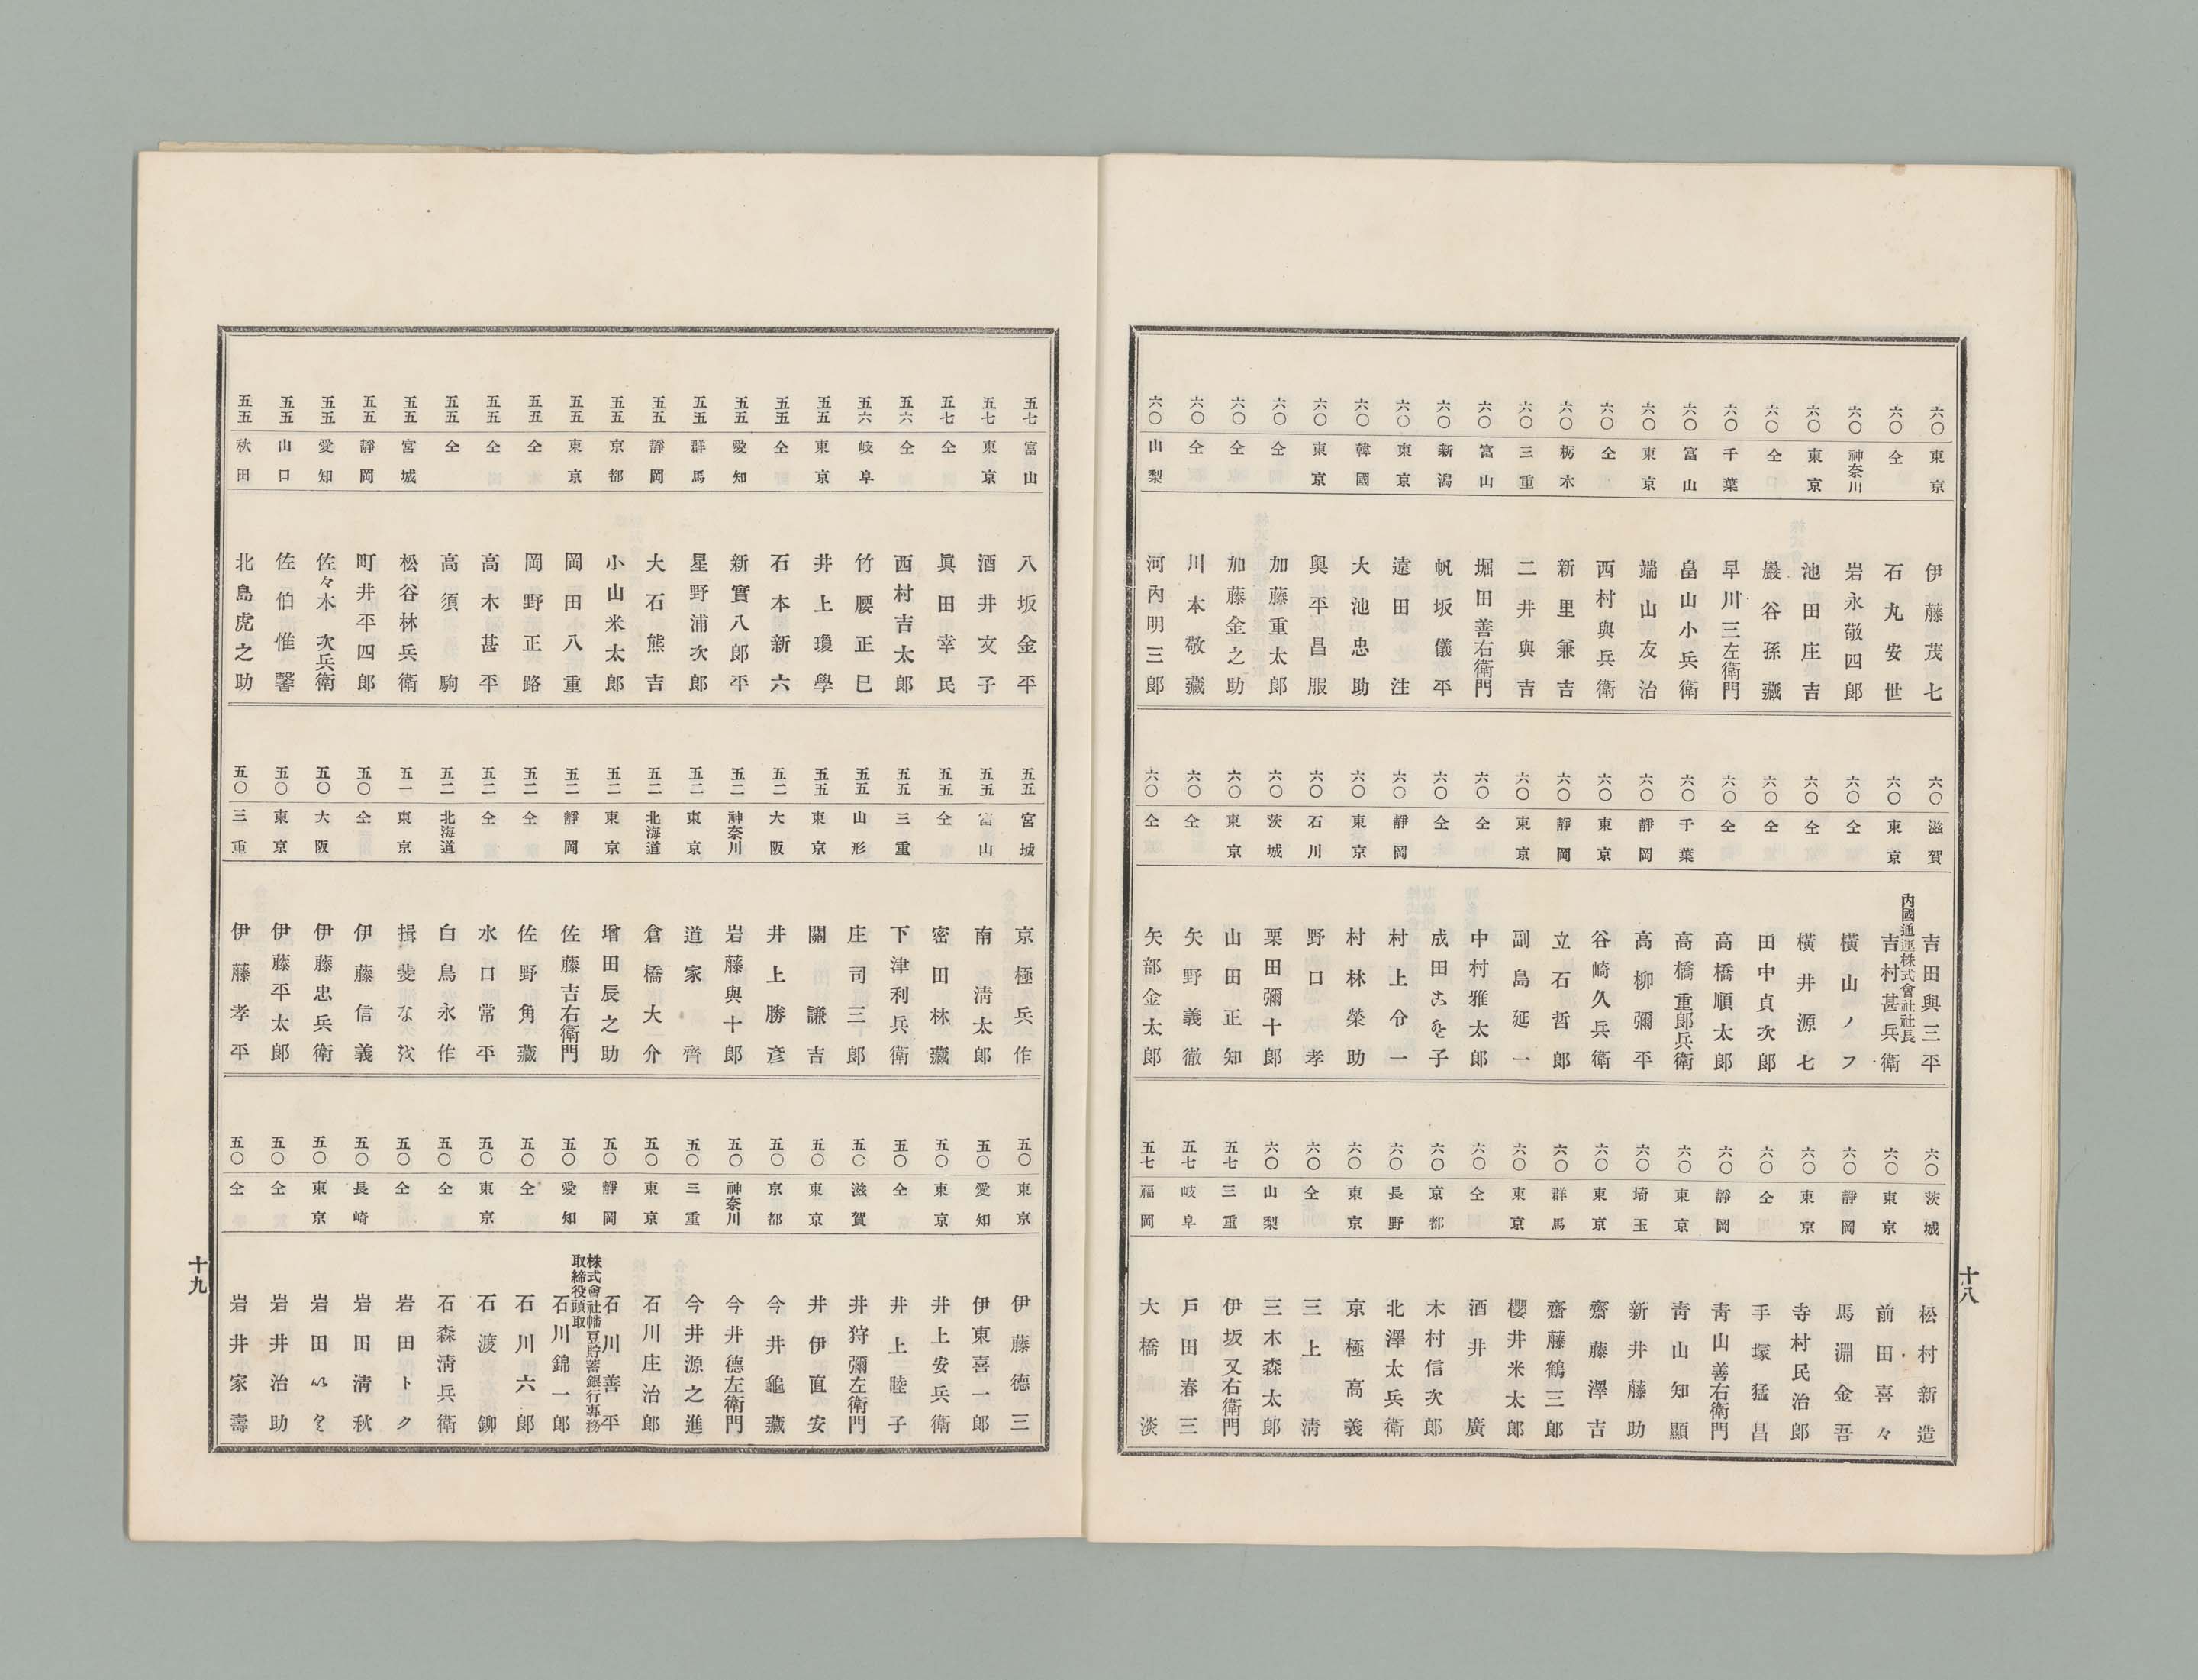 六〇 東京 伊藤茂七
六〇 仝 石丸安世
六〇 神奈川 岩永敬四郎
六〇 東京 池田庄吉
六〇 仝 巖谷孫藏
六〇 千葉 早川三左衛門
六〇 富山 畠山小兵衛
六〇 東京 端山友治
六〇 仝 西村與兵衛
六〇 栃木 新里兼吉
六〇 三重 二井與吉
六〇 富山 堀田善右衛門
六〇 新潟 帆坂儀平
六〇 東京 遠田注
六〇 韓國 大池忠助
六〇 東京 奧平昌服
六〇 仝 加藤重太郎
六〇 仝 加藤金之助
六〇 仝 川本敬藏
六〇 山梨 河內明三郎
六〇 滋賀 吉田與三平
六〇 東京 內國通運株式會社社長 吉村甚兵衛
六〇 仝 橫山ノフ
六〇 仝 橫井源七
六〇 仝 田中貞次郎
六〇 仝 高橋順太郎
六〇 千葉 高橋重郎兵衛
六〇 靜岡 高柳彌平
六〇 東京 谷崎久兵衛
六〇 靜岡 立石哲郎
六〇 東京 副島延一
六〇 仝 中村雅太郎
六〇 仝 成田子
六〇 靜岡 村上令一
六〇 東京 村林榮助
六〇 石川 野口孝
六〇 茨城 栗田彌十郎
六〇 東京 山田正知
六〇 仝 矢野義徹
六〇 仝 矢部金太郎
六〇 茨城 松村新造
六〇 東京 前田喜々
六〇 靜岡 馬淵金吾
六〇 東京 寺村民治郎
六〇 仝 手塚猛昌
六〇 靜岡 靑山善右衛門
六〇 東京 靑山知顯
六〇 埼玉 新井藤助
六〇 東京 齋藤澤吉
六〇 群馬 齋藤鶴三郎
六〇 東京 櫻井米太郎
六〇 仝 酒井廣
六〇 京都 木村信次郎
六〇 長野 北澤太兵衛
六〇 東京 京極高義
六〇 仝 三上淸
六〇 山梨 三木森太郎
五七 三重 伊坂又右衛門
五七 岐阜 戶田春三
五七 福岡 大橋淡
十八
五七 富山 八坂金平
五七 東京 酒井文子
五七 仝 眞田幸民
五六 仝 西村吉太郎
五六 岐阜 竹腰正巳
五五 東京 井上瓊學
五五 仝 石本新六
五五 愛知 新實八郎平
五五 群馬 星野浦次郎
五五 靜岡 大石熊吉
五五 京都 小山米太郎
五五 東京 岡田小八重
五五 仝 岡野正路
五五 仝 高木甚平
五五 仝 高須駒
五五 宮城 松谷林兵衛
五五 靜岡 町井平四郎
五五 愛知 佐々木次兵衛
五五 山口 佐伯惟馨
五五 秋田 北島虎之助
五五 宮城 京極兵作
五五 富山 南淸太郎
五五 仝 密田林藏
五五 三重 下津利兵衛
五五 山形 庄司三郎
五五 東京 關謙吉
五二 大阪 井上勝彥
五二 神奈川 岩藤與十郎
五二 東京 道家齊
五二 北海道 倉橋大介
五二 東京 增田辰之助
五二 靜岡 佐藤吉右衛門
五二 仝 佐野角藏
五二 仝 水口常平
五二 北海道 白鳥永作
五一 東京 揖斐な
五〇 仝 伊藤信義
五〇 大阪 伊藤忠兵衛
五〇 東京 伊藤平太郎
五〇 三重 伊藤孝平
五〇 東京 伊藤德三
五〇 愛知 伊東喜一郎
五〇 東京 井上安兵衛
五〇 仝 井上睦子
五〇 滋賀 井狩彌左衛門
五〇 東京 井伊直安
五〇 京都 今井龜藏
五〇 神奈川 今井德左衛門
五〇 三重 今井源之進
五〇 東京 石川庄治郎
五〇 靜岡 石川善平
五〇 愛知 株式會社幡豆貯蓄銀行專務取締役頭取 石川錦一郎
五〇 仝 石川六郎
五〇 東京 石渡鉚
五〇 仝 石森淸兵衛
五〇 仝 岩田トク
五〇 長崎 岩田淸秋
五〇 東京 岩田
五〇 仝 岩井治助
五〇 仝 岩井家壽
十九